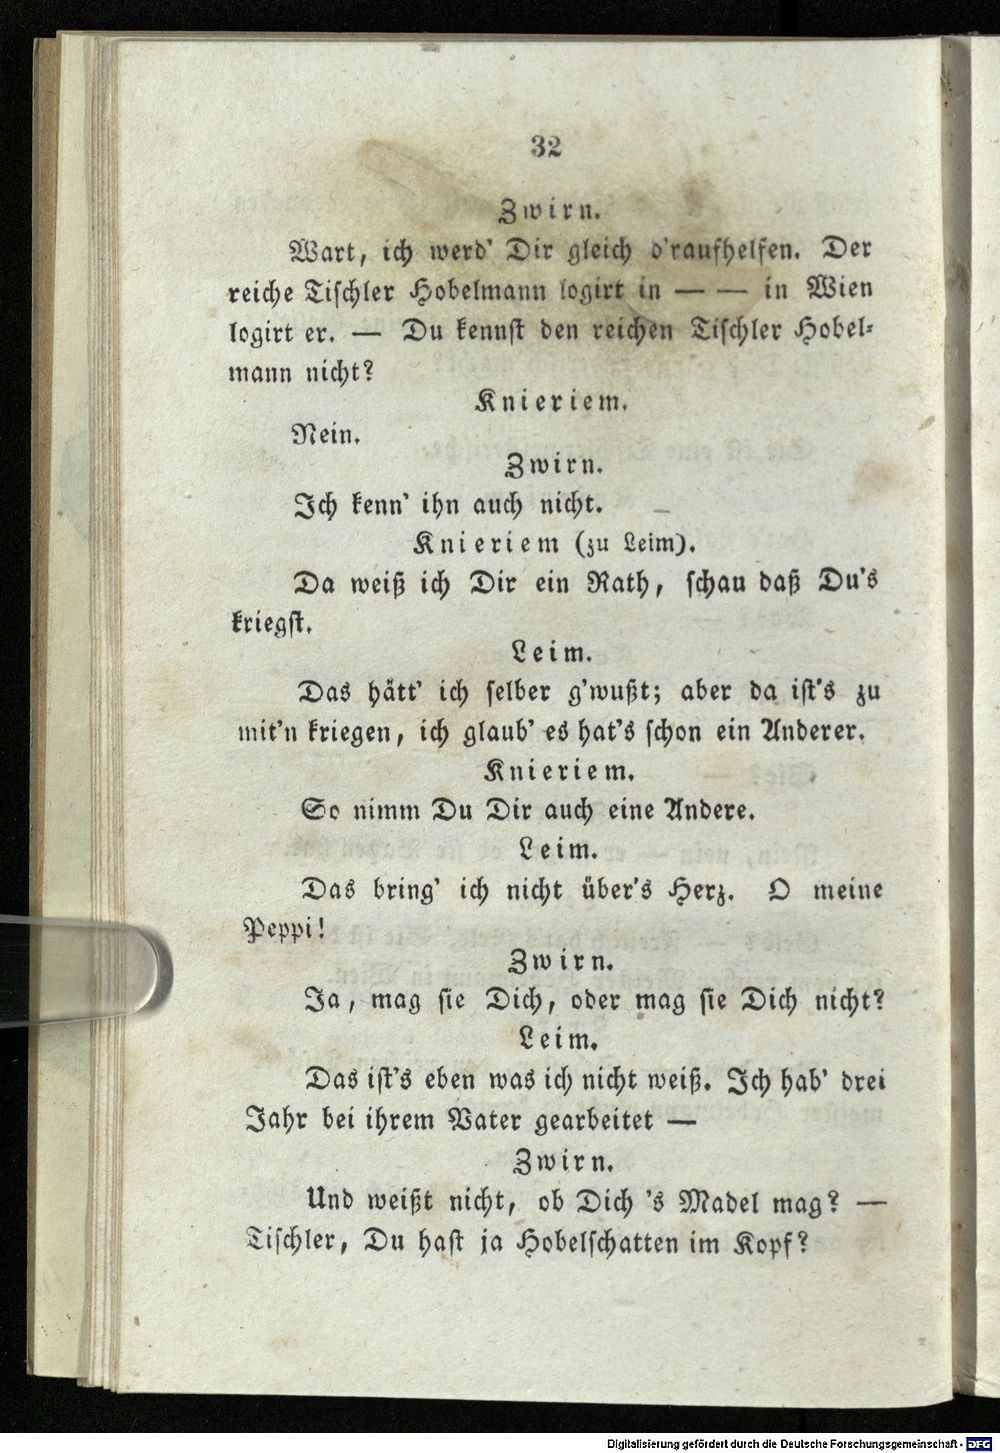 32
Zwirn.
Wart, ich werd' Dir gleich d'raufhelfen. Der
reiche Tischler Hobelmann logirt in — — in Wien
logirt er. — Du kennst den reichen Tischler Hobel-
mann nicht?
Knieriem.
Nein.
Zwirn.
Ich kenn' ihn auch nicht.
Knieriem (zu Leim).
Da weiß ich Dir ein Rath, schau daß Du's
kriegst.
Leim.
Das hätt' ich selber g'wußt; aber da ist's zu
mit'n kriegen, ich glaub' es hat's schon ein Anderer.
Knieriem.
So nimm Du Dir auch eine Andere.
Leim.
Das bring' ich nicht über's Herz. O meine
Peppi!
Zwirn.
Ja, mag sie Dich, oder mag sie Dich nicht?
Leim.
Das ist's eben was ich nicht weiß. Ich hab' drei
Jahr bei ihrem Vater gearbeitet —
Zwirn.
Und weißt nicht, ob Dich 's Madel mag? —
Tischler, Du hast ja Hobelschatten im Kopf?
Digitalisierung gefördert durch die Deutsche Forschungsgemeinschaft - DFG